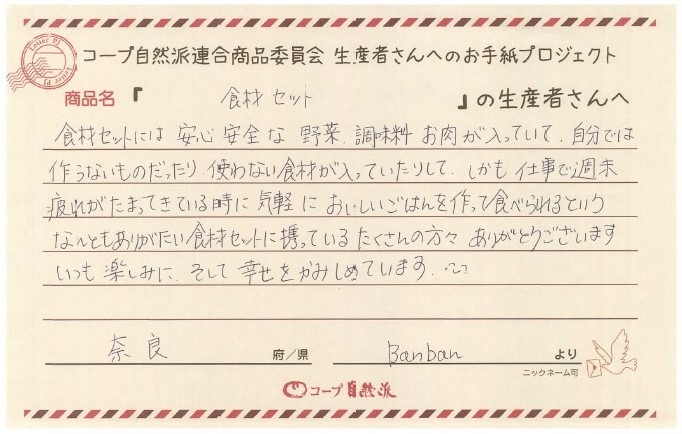 Letter PJ
Letter PJ
コープ自然派連合商品委員会 生産者さんへのお手紙プロジェクト
商品名『 食材セット 』の生産者さんへ
食材セットには 安心 安全な 野菜 調味料 お肉が入っていて、自分では
作らないものだったり 使わない食材が入っていたりして、しかも 仕事で週末
疲れがたまってきている時に 気軽に おいしいごはんを作って食べられるという
なんともありがたい食材セットに携っている たくさんの方々 ありがとうございます
いつも 楽しみに、そして 幸せをかみしめています。
奈良 府/県 Banban より
ニックネーム可
コープ自然派